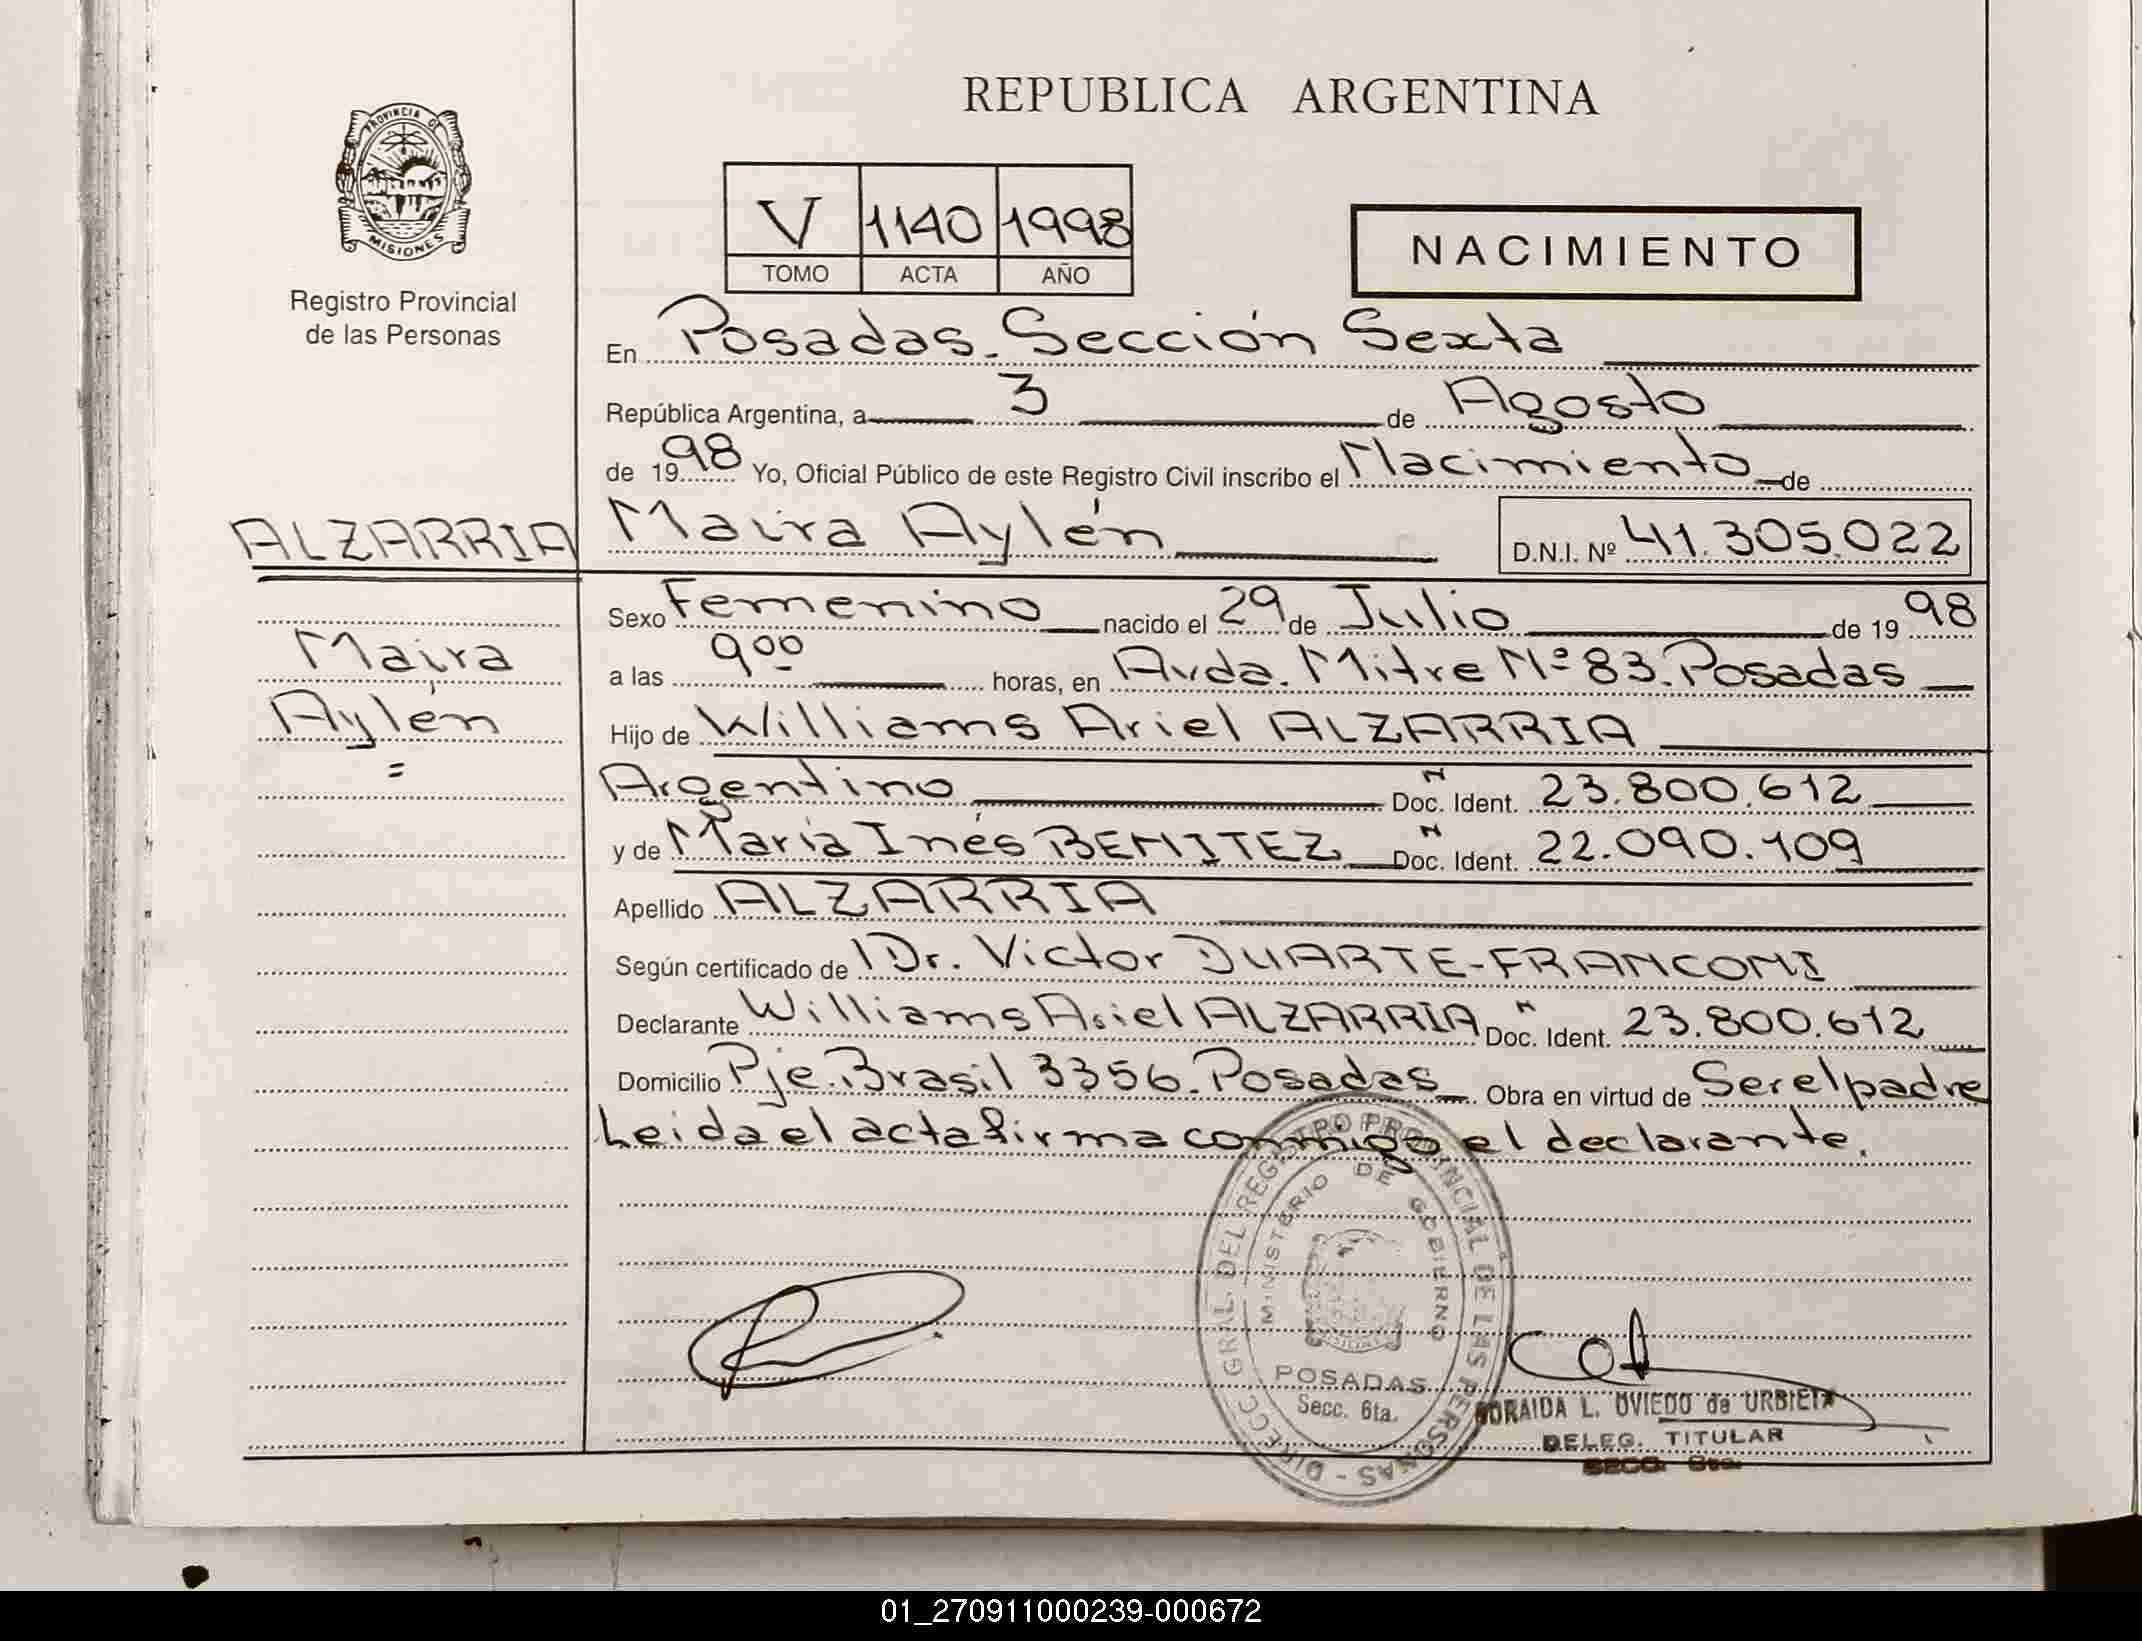 REPUBLICA ARGENTINA
PROVINCIA DE
MISIONES
Registro Provincial
de las Personas
V 1140 1998
TOMO ACTA AÑO
NACIMIENTO
En Posadas. Sección Sexta
República Argentina, a 3 de Agosto
de 1998 Yo, Oficial Público de este Registro Civil inscribo el Nacimiento de
ALZARRIA Maira Aylén D.N.I. Nº 41.305.022
Sexo Femenino nacido el 29 de Julio de 1998
Maira
a las 9 00 horas, en Avda. Mitre Nº 83. Posadas
Aylén
Hijo de Williams Ariel ALZARRIA
Argentino Doc. Ident. N 23.800.612
y de María Inés BENITEZ Doc. Ident. N 22.090.109
Apellido ALZARRIA
Según certificado de Dr. Victor DUARTE-FRANCONI
Declarante Williams Ariel ALZARRIA Doc. Ident. N 23.800.612
Domicilio Pje. Brasil 3356. Posadas Obra en virtud de Ser el padre
Leida el acta firma conmigo el declarante.
DIRECC. GRAL. DEL REGISTRO PROVINCIAL DE LAS PERSONAS -
MINISTERIO DE GOBIERNO
POSADAS
Secc. 6ta.
L. OVIEDO de URBIETA
DELEG. TITULAR
SECC. 6ta.
01_270911000239-000672